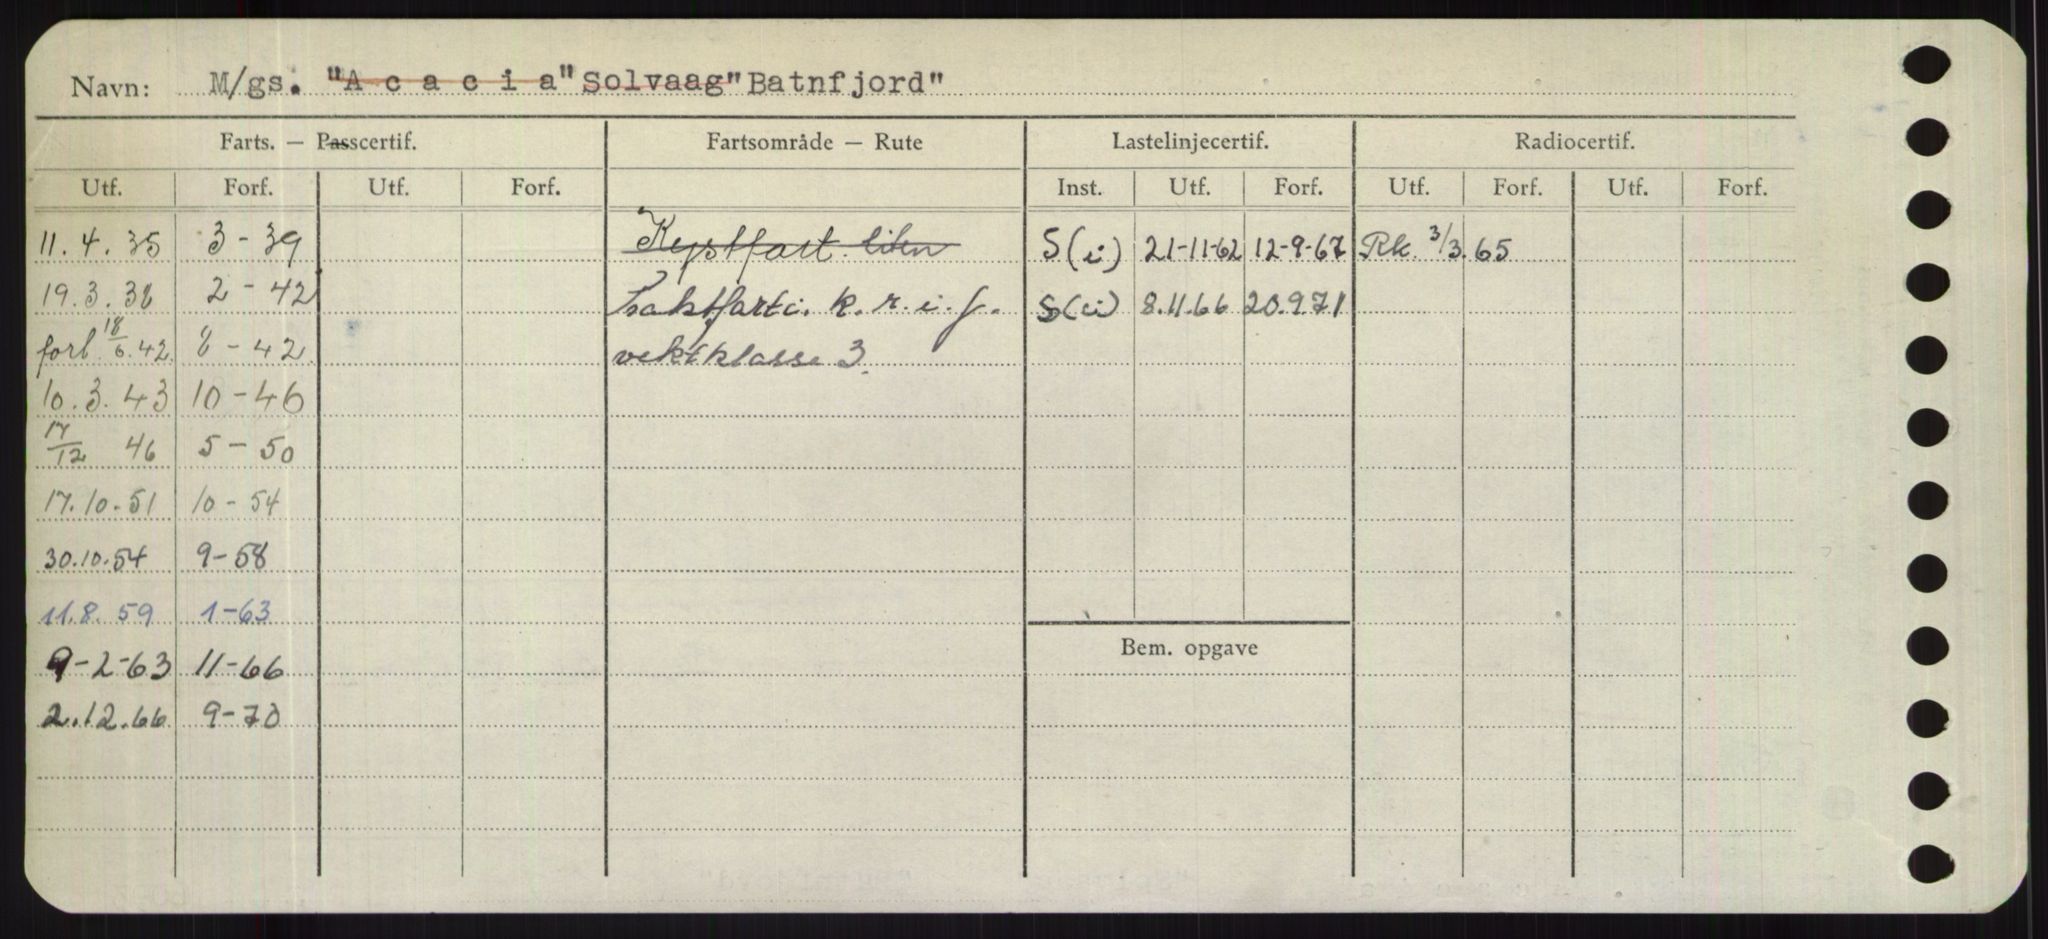 Navn: M/gs. "A c a c i a" Solvaag" Batnfjord"
Farts. — Passcertif. Fartsområde — Rute Lastelinjecertif. Radiocertif.
Utf. Forf. Utf. Forf. Inst. Utf. Forf. Utf. Forf. Utf. Forf.
11.4.35 3-39 Kystfart liten S(i) 21-11-62 12-9-67 Rk. 3/3.65
19.3.38 2-42 fraktfart i. k.r.i.f. S(i) 8.11.66 20.9.71
forl. 18/6.42 8-42 vektklasse 3.
10.3.43 10-46
17/12 46 5-50
17.10.51 10-54
30.10.54 9-58
11.8.59 1-63
9-2-63 11-66
Bem. opgave
2.12.66 9-70